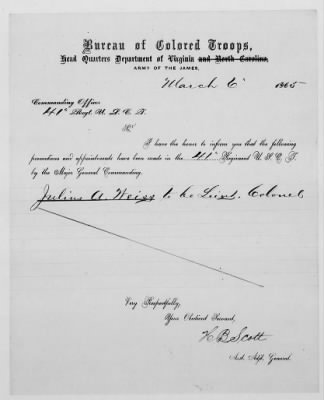 Bureau of Colored Troops,
Head Quarters Department of Virginia and North Carolina,
ARMY OF THE JAMES,
March 6" 1865
Commanding Officer
41st Regt U. S. C. T.
Sir
I have the honor to inform you that the following
promotions and appointments have been made in the 41st Regiment U. S. C. T.
by the Major General Commanding.
Julius A. Weiss to be Lieut. Colonel
Very Respectfully,
Your Obedient Servant,
H B Scott
Asst. Adjt. General.